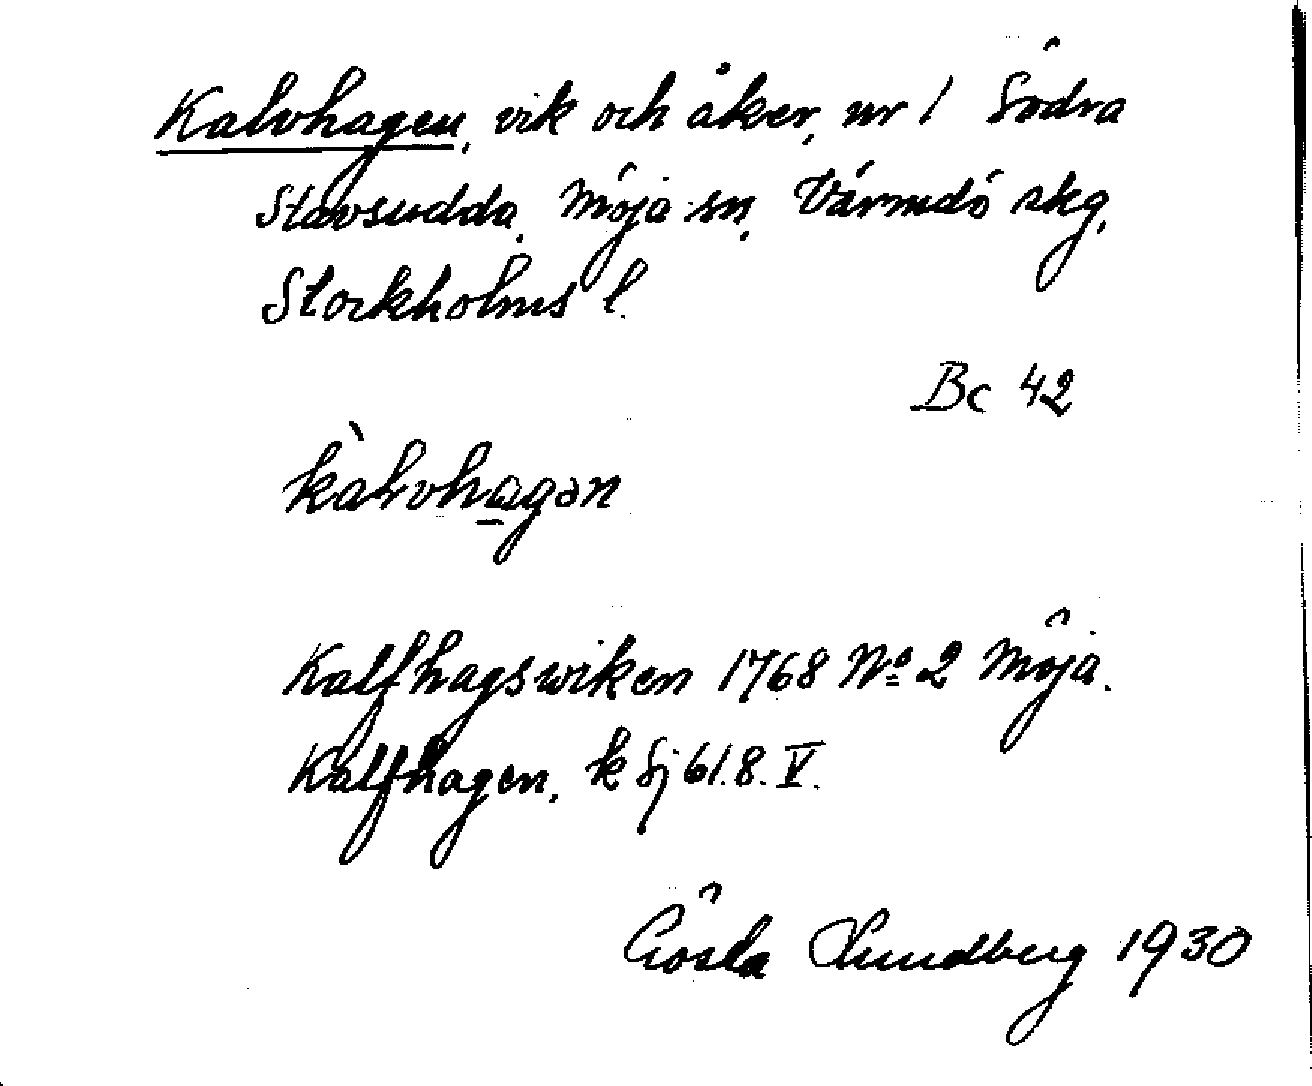 Kalvhagen, vik och åker, nr 1 Södra
Stavsudda, Möja sn, Värmdö skg,
Stockholms l.
Bc 42
kàlvhagən
Kalfhagswiken 1768 No 2 Möja.
Kalfhagen, k Sj 61.8.V.
Gösta Lundberg 1930